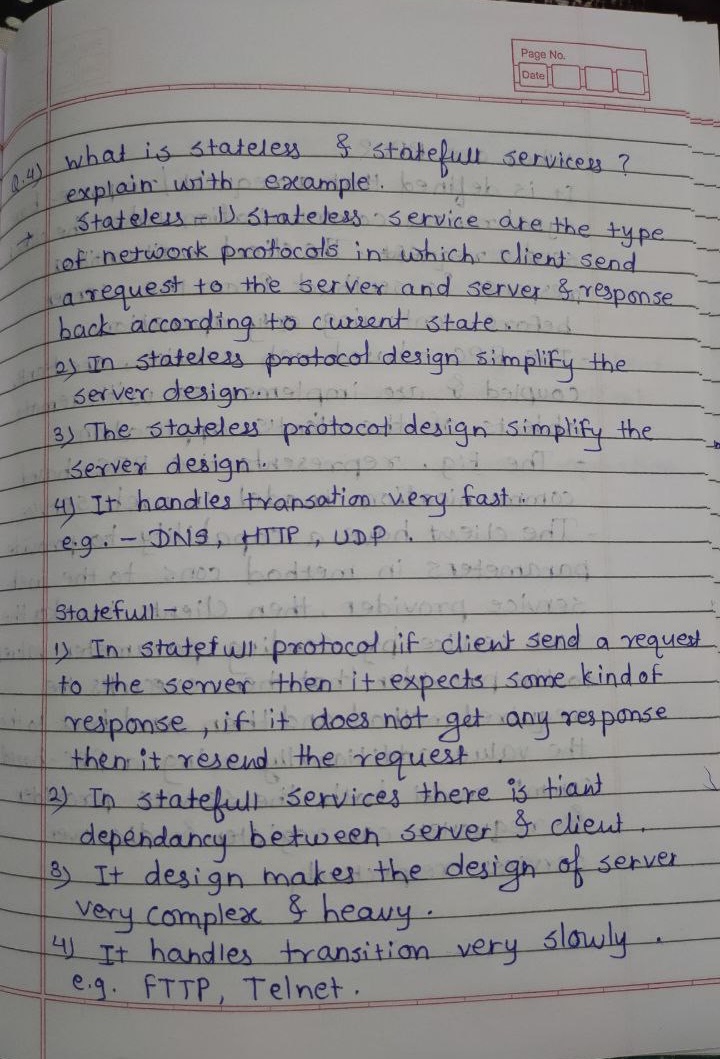 Page No.
Date
Q.4) What is stateless & statefull servicess ?
explain with example.
→ Stateless - 1) Stateless service are the type
of network protocols in which client send
a request to the server and server & response
back according to current state.
2) In stateless protocol design simplify the
server design.
3) The stateless protocol design simplify the
server design.
4) It handles transation very fast.
e.g. - DNS, HTTP, UDP.
Statefull -
1) In statefull protocol if client send a request
to the server then it expects some kind of
response, if it does not get any response
then it resend the request.
2) In statefull services there is tiant
dependancy between server & client.
3) It design makes the design of server
very complex & heavy.
4) It handles transition very slowly.
e.g. FTTP, Telnet.